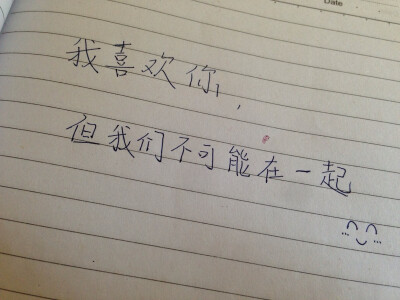 Date
我喜欢你，
但我们不可能在一起